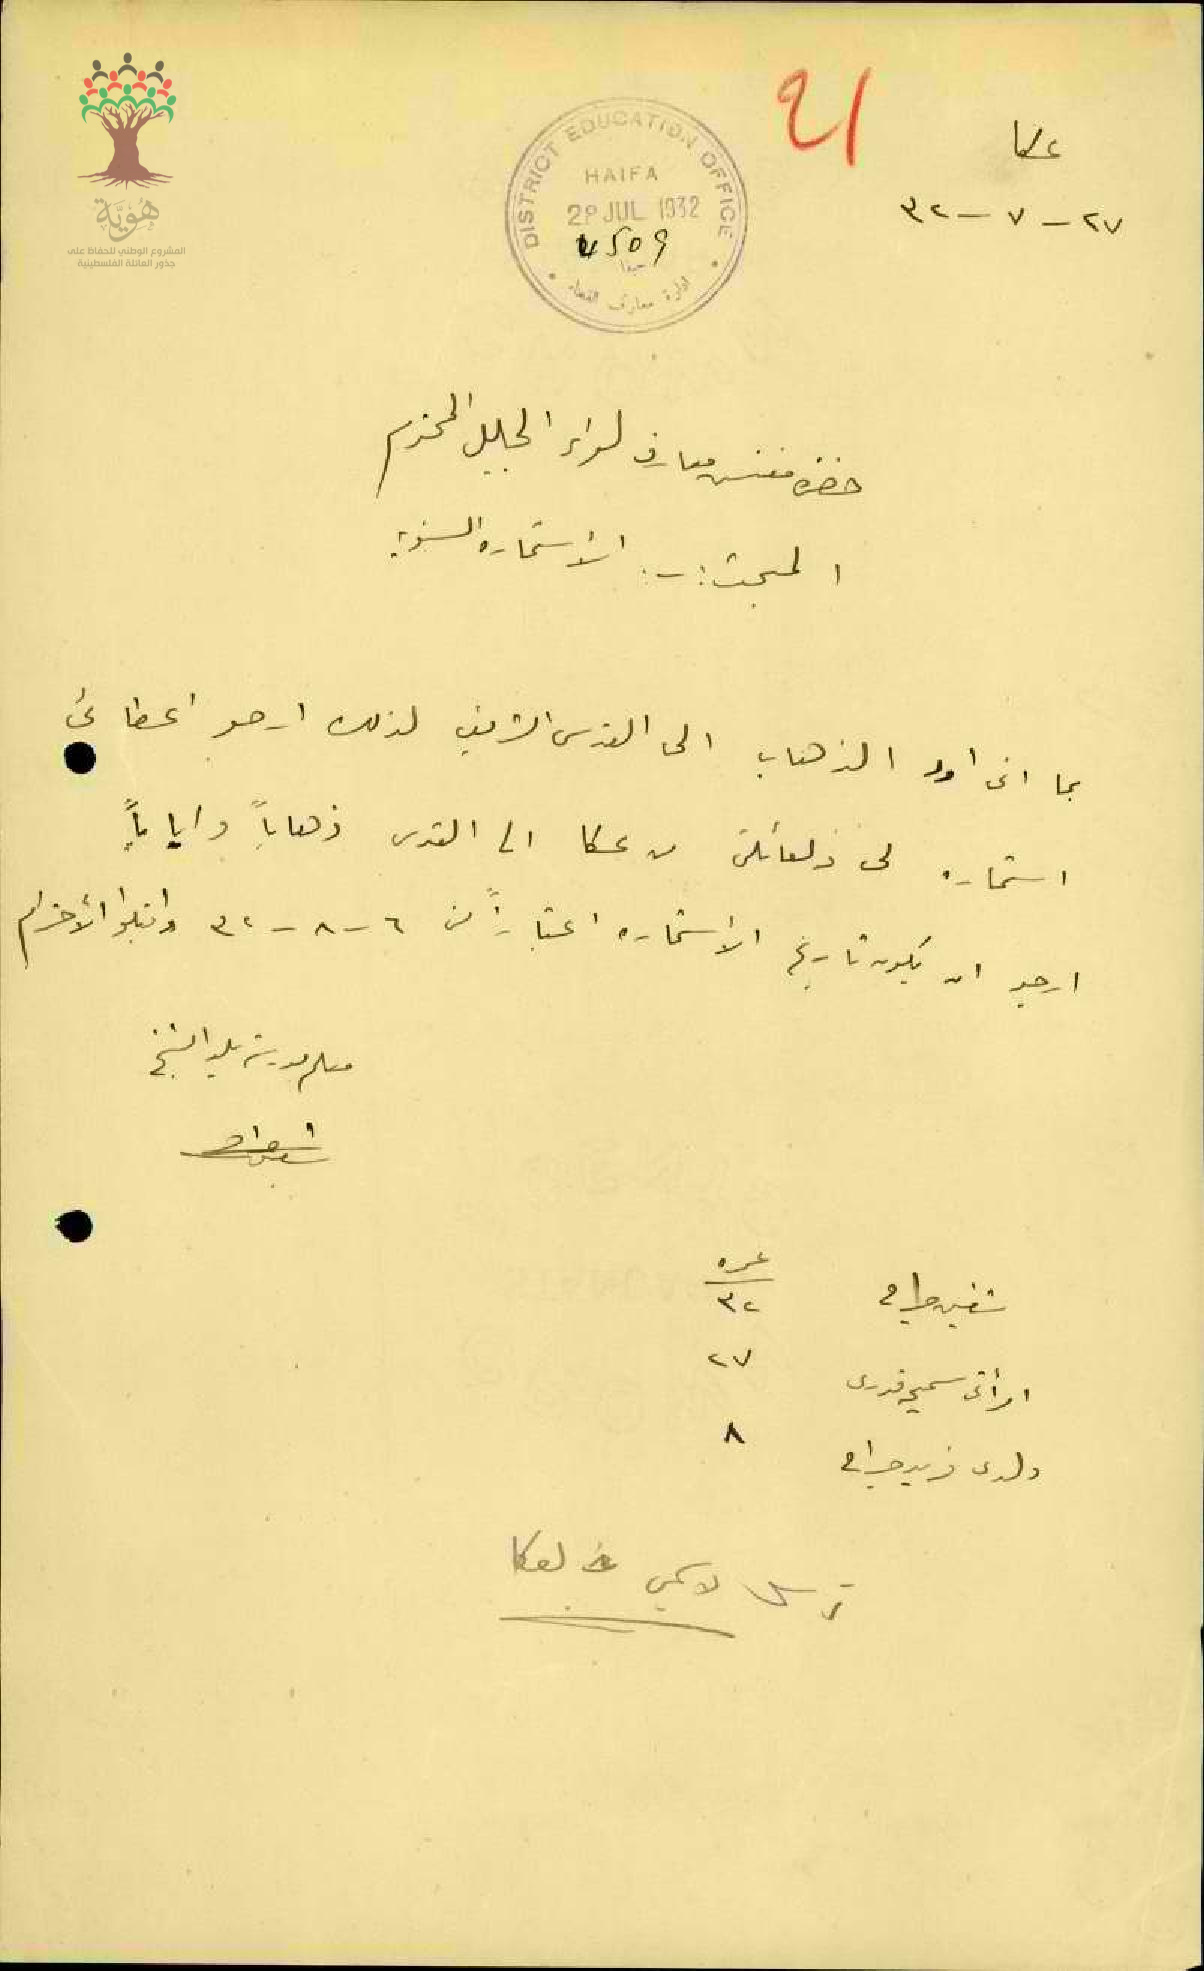 هُوِيَّة
المشروع الوطني للحفاظ على
جذور العائلة الفلسطينية
DISTRICT EDUCATION OFFICE
HAIFA
29 JUL 1932
4509
حيفا
ادارة معارف القضاء
21
عكا
٢٧ - ٧ - ٣٢
حضرة مفتش معارف لواء الجليل المحترم
المبحث :- الأستمارة السنوية
بما انى اود الذهاب الى القدس الشريف لذلك ارجو اعطائى
استماره لى ولعائلتى من عكا الى القدس ذهاباً واياباً
ارجو ان يكون تاريخ الأستماره اعتباراً من ٦ - ٨ - ٣٢ واقبلوا الأحترام
معلم مدرسة بلد الشيخ
عمره
شفيق جراح ٣٢
امرأتى سميحه قدرى ٢٧
ولدى فريد جراح ٨
ترسل لعكا